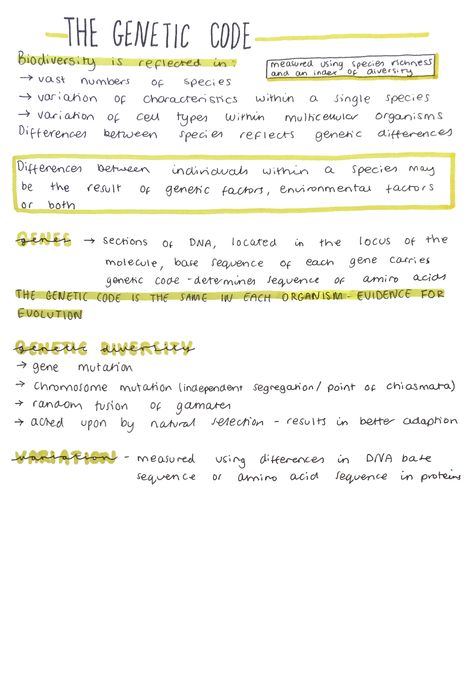 THE GENETIC CODE
Biodiversity is reflected in:
measured using species richness
and an index of diversity
→ vast numbers of species
→ variation of characteristics within a single species
→ variation of cell types within multicellular organisms
Differences between species reflects genetic differences
Differences between individuals within a species may
be the result of genetic factors, environmental factors
or both
genes → sections of DNA, located in the locus of the
molecule, base sequence of each gene carries
genetic code - determines sequence of amino acids
THE GENETIC CODE IS THE SAME IN EACH ORGANISM - EVIDENCE FOR
EVOLUTION
genetic diversity
→ gene mutation
→ chromosome mutation (independent segregation/ point of chiasmata)
→ random fusion of gametes
→ acted upon by natural selection - results in better adaption
variation - measured using differences in DNA base
sequence or amino acid sequence in proteins